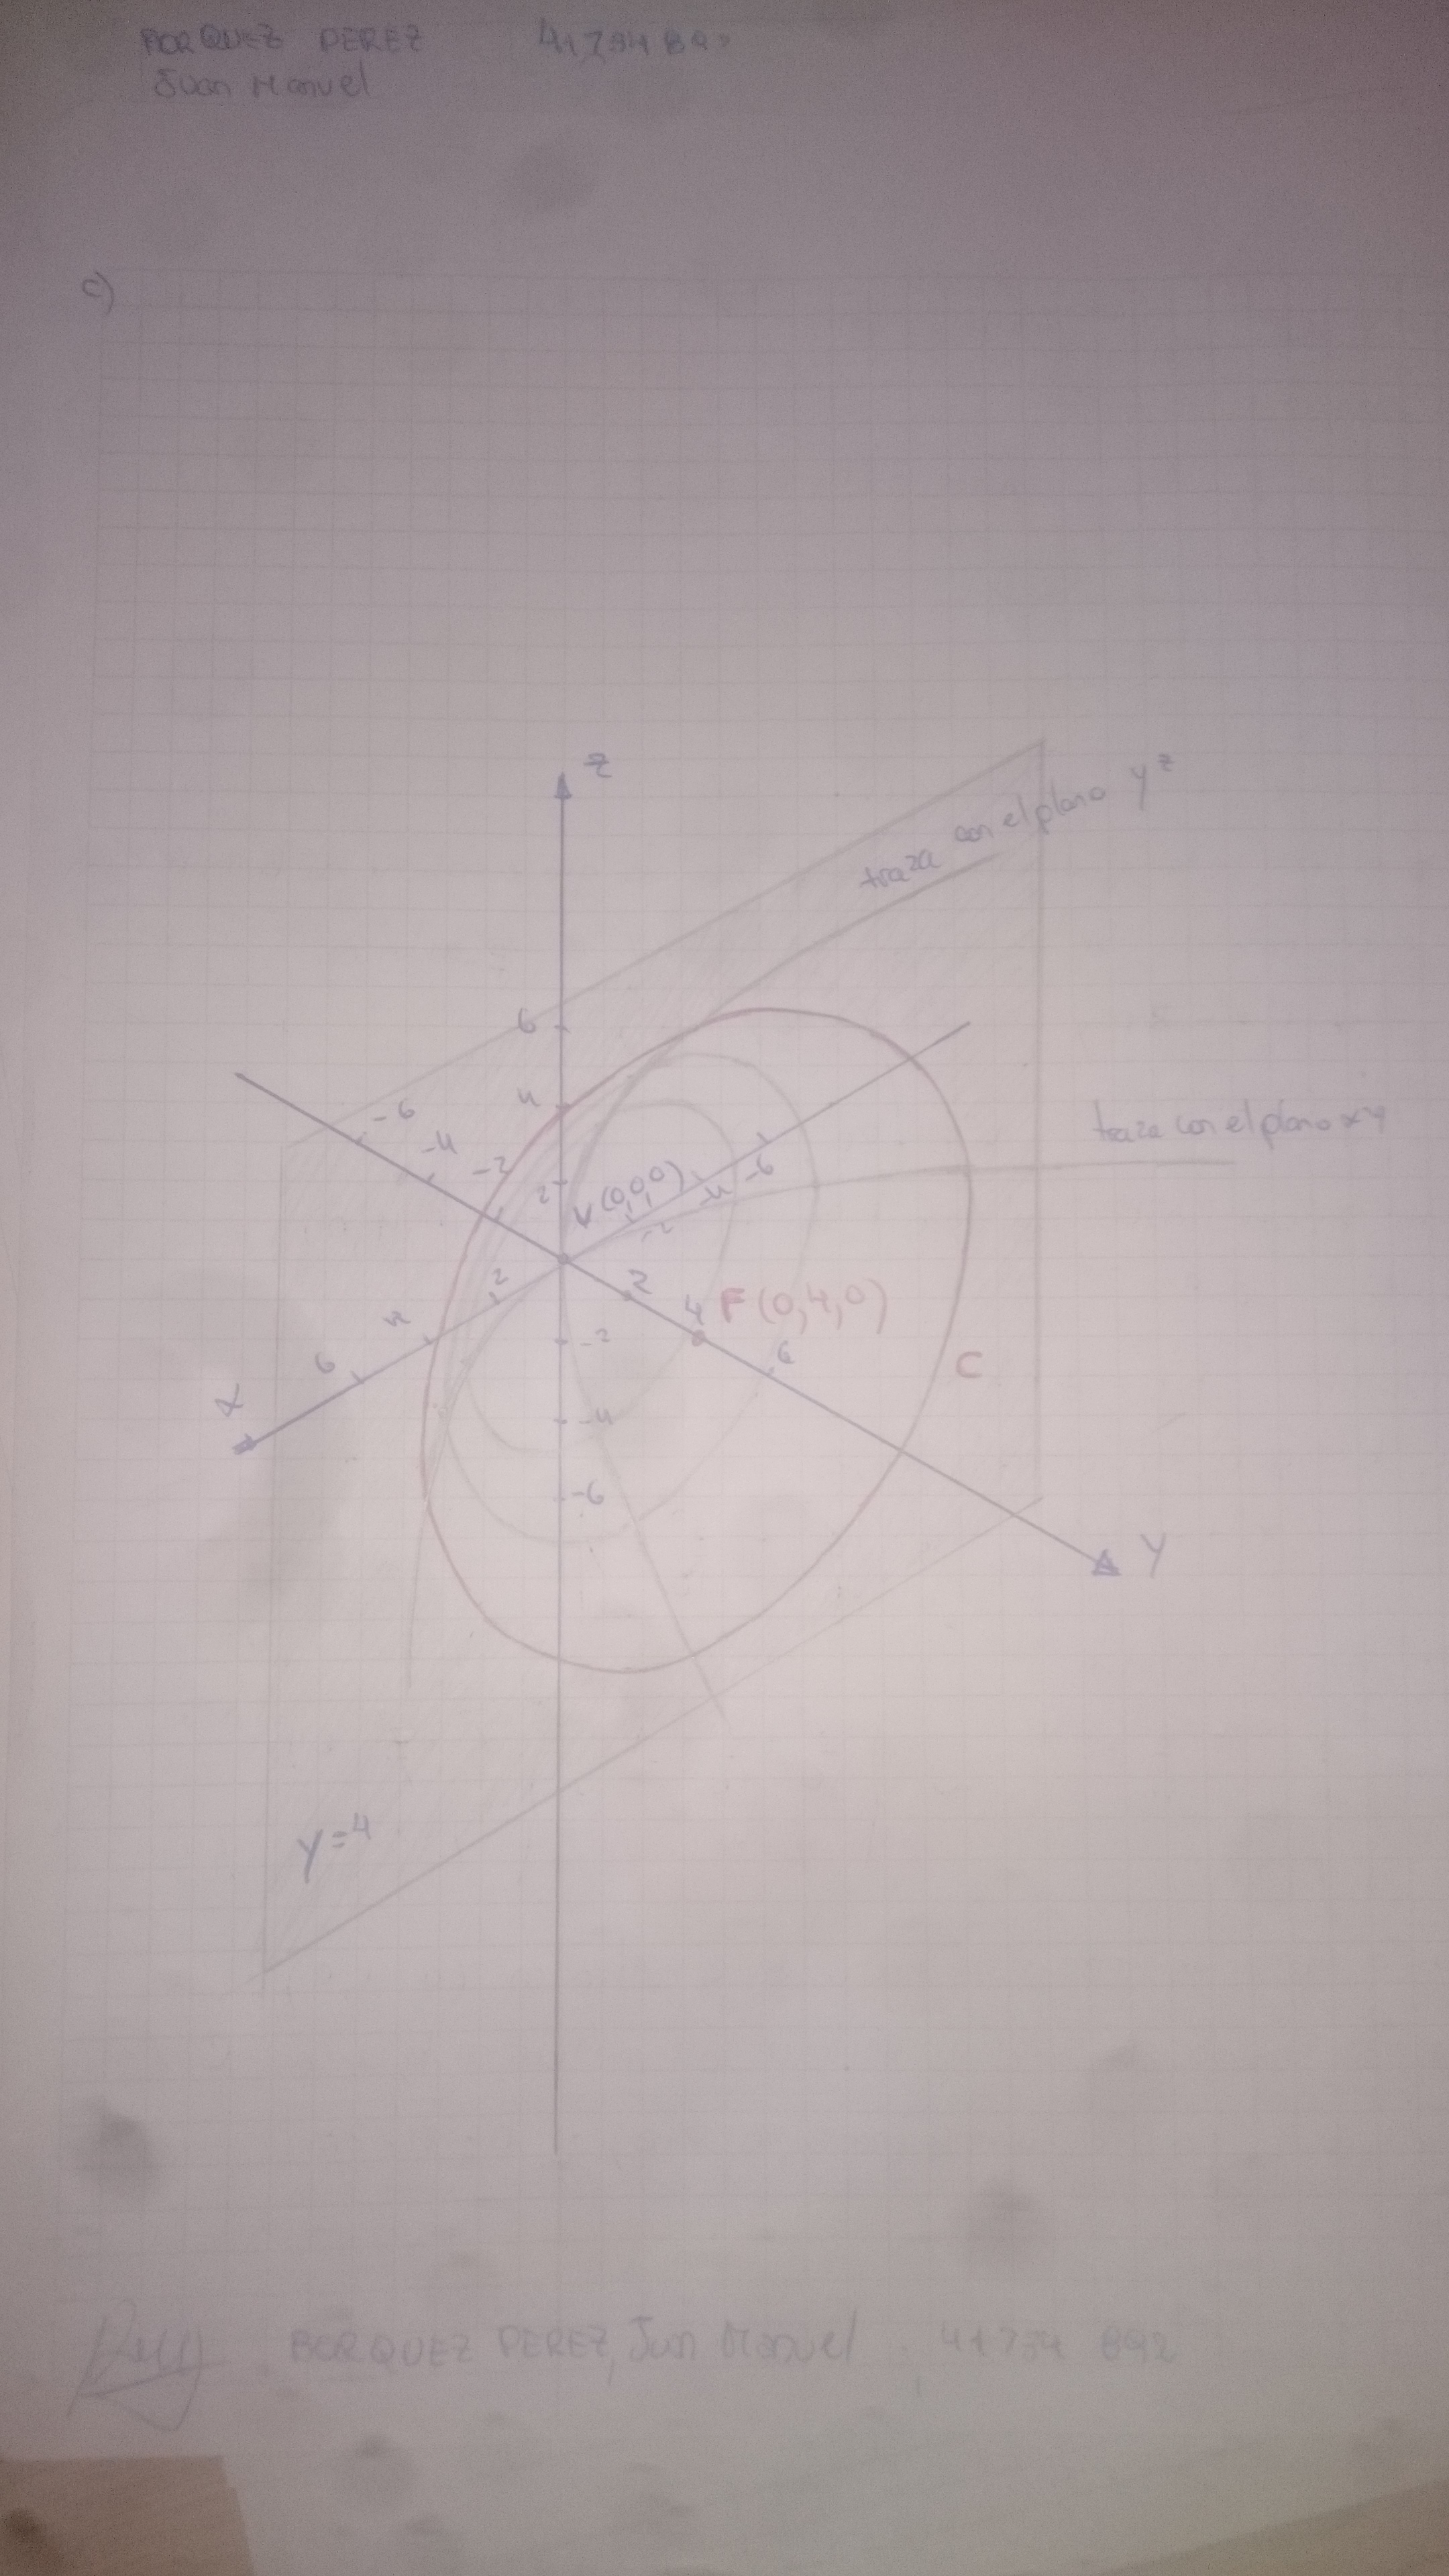 BORQUEZ PEREZ 41794892
Juan Manuel
c)
z
traza con el plano yz
6
-6
4
-4
traza con el plano xy
-2
2
V(0,0,0)
-6
-4
-2
2
2
4
F(0,4,0)
4
-2
6
6
C
x
-4
-6
y
y=4
BORQUEZ PEREZ, Juan Manuel 41794892